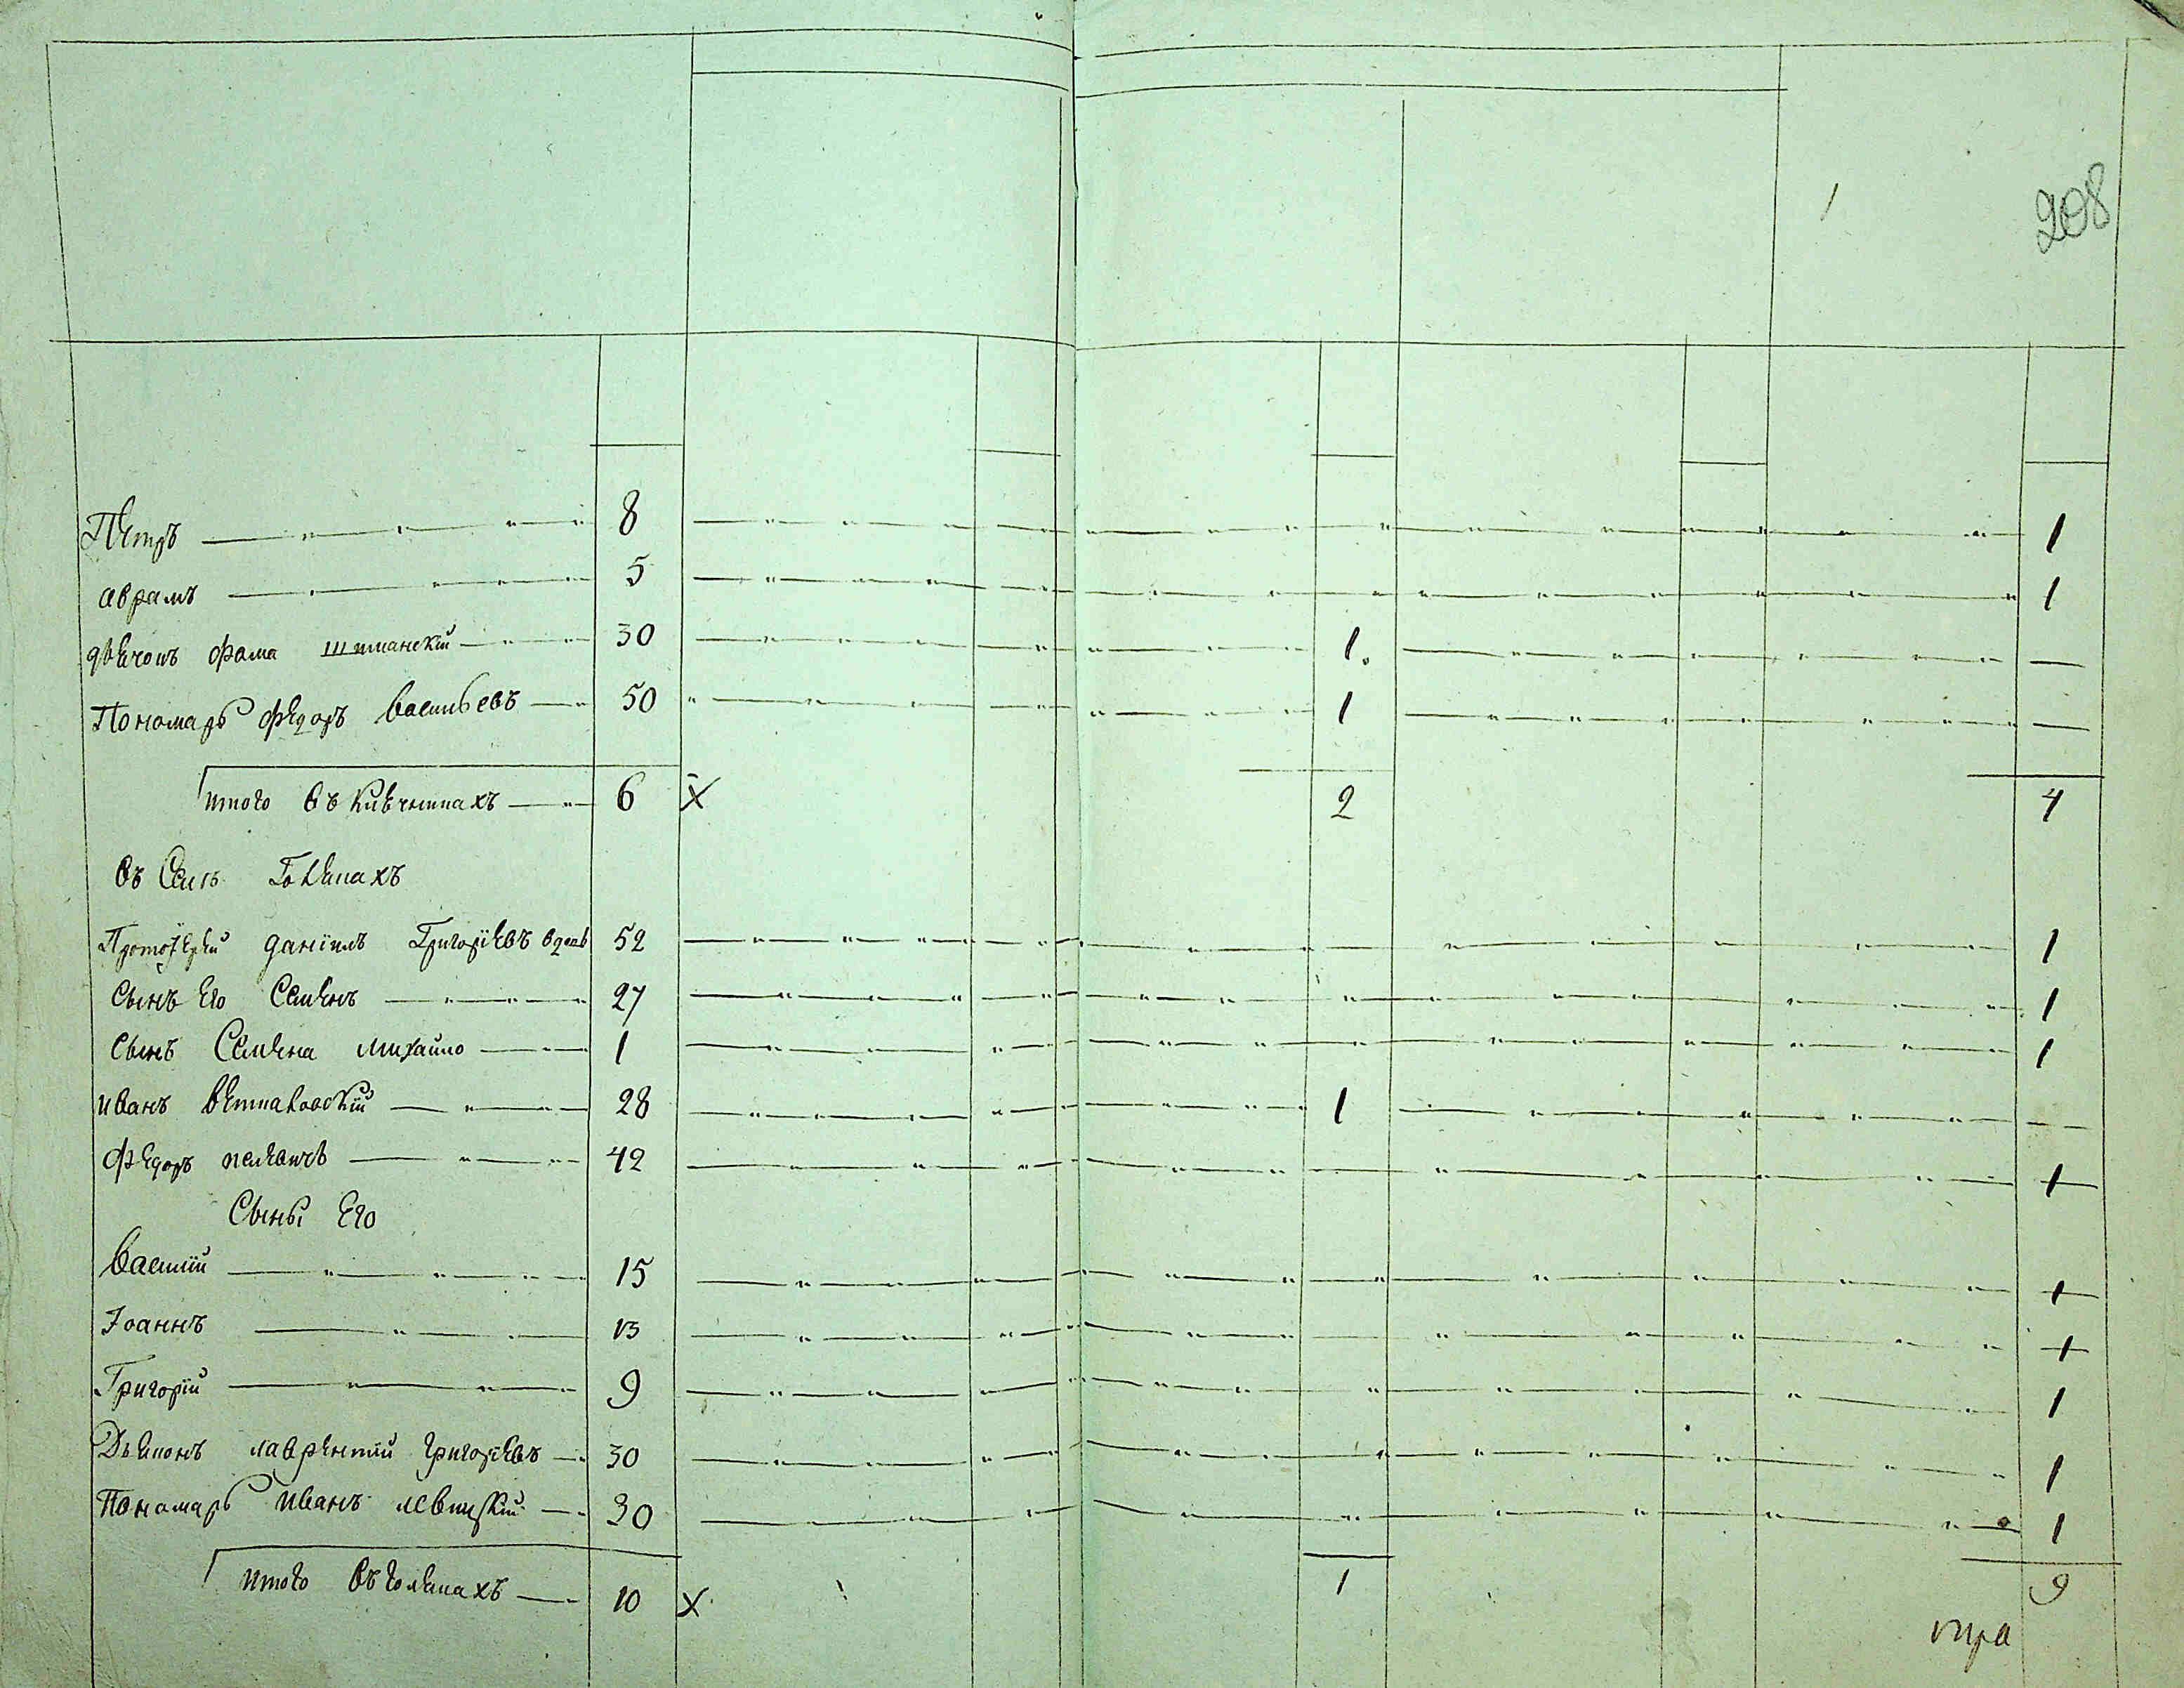 208
Петръ 8 1
Аврамъ 5 1
дьечокъ Фома 30 1 —
Пономарь Федоръ Васильевъ 50 1 —
итого въ Кивчинцахъ 6 х 2 4
въ Селѣ
Протоіерей Даніилъ Григоріевъ вдовъ 52 1
Сынъ Его Семенъ 27 1
Сынъ Семена Михайло 1 1
Иванъ 28 1
Федоръ 42 1
Сыны Его
Василій 15 1
Іоаннъ 13 1
Григорій 9 1
Дьяконъ Лаврентій Григоріевъ 30 1
Пономарь Иванъ Левицкій 30 1
итого въ 10 х 1 9